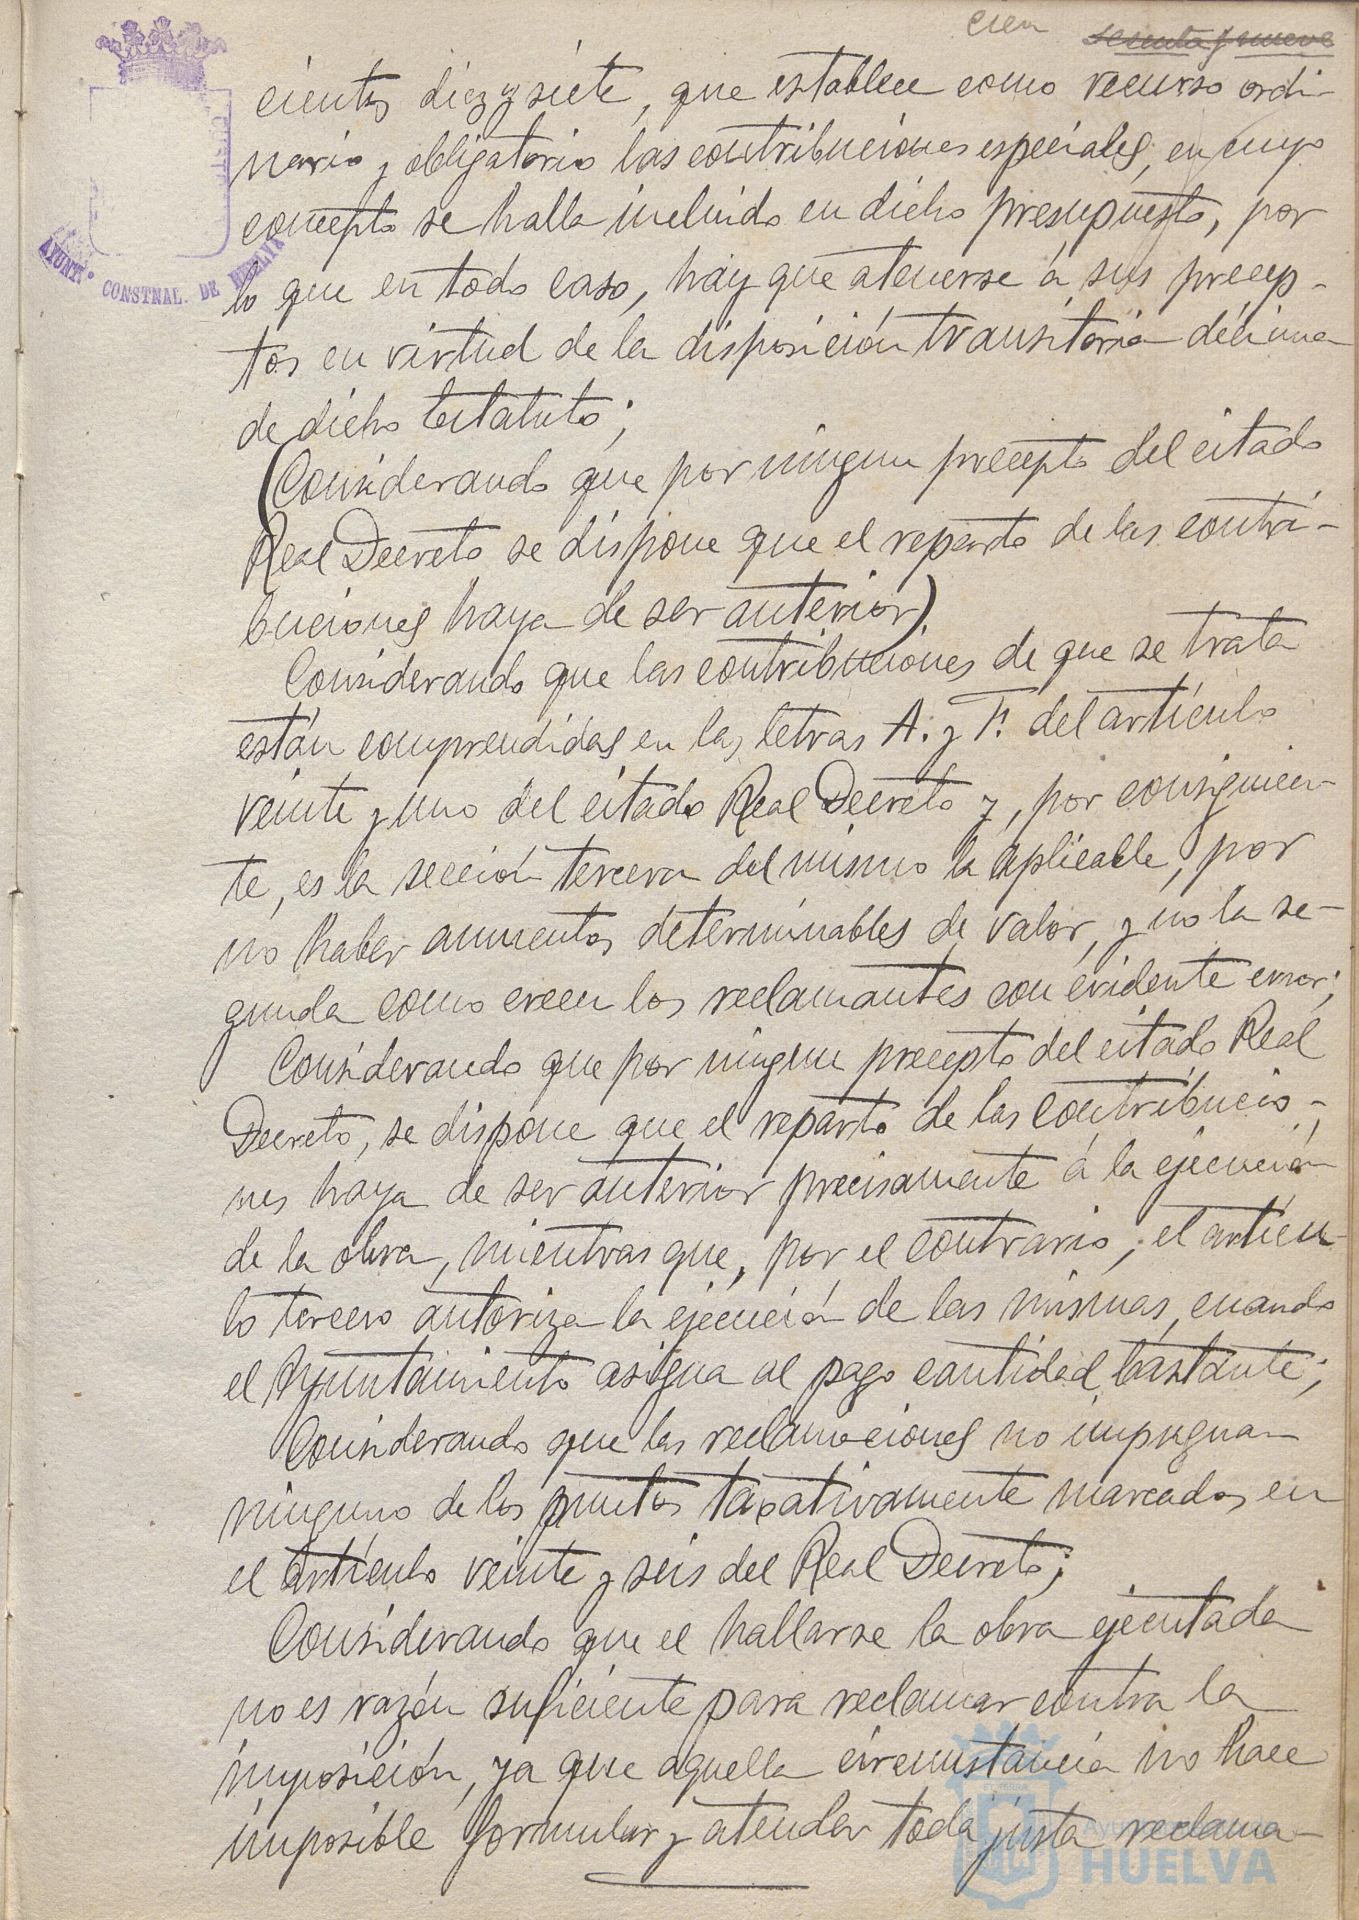 cien sesenta y nueve
cientos diez y siete, que establece como recurso ordi-
nario y obligatorio las contribuciones especiales, en cuyo
concepto se halla incluido en dicho presupuesto, por
lo que en todo caso, hay que atenerse á sus precep-
tos en virtud de la disposición transitoria décima
de dicho Estatuto;
(Considerando que por ningun precepto del citado
Real Decreto se dispone que el reparto de las contri-
buciones haya de ser anterior)
Considerando que las contribuciones de que se trata
están comprendidas en las letras A. y F. del artículo
veinte y uno del citado Real Decreto y, por consiguien-
te, es la sección tercera del mismo la aplicable, por
no haber aumentos determinables de valor, y no la se-
gunda como creen los reclamantes con evidente error;
Considerando que por ningun precepto del citado Real
Decreto, se dispone que el reparto de las contribucio-
nes haya de ser anterior precisamente á la ejecución
de la obra, mientras que, por el contrario, el artícu-
lo tercero autoriza la ejecución de las mismas, cuando
el Ayuntamiento asigna al pago cantidad bastante;
Considerando que las reclamaciones no impugnan
ninguno de los puntos taxativamente marcados en
el artículo veinte y seis del Real Decreto;
Considerando que el hallarse la obra ejecutada
no es razón suficiente para reclamar contra la
imposición, ya que aquella circunstancia no hace
imposible formular y atender toda justa reclama-
AYUNTº CONSTNAL. DE HUELVA
Ayuntamiento
HUELVA